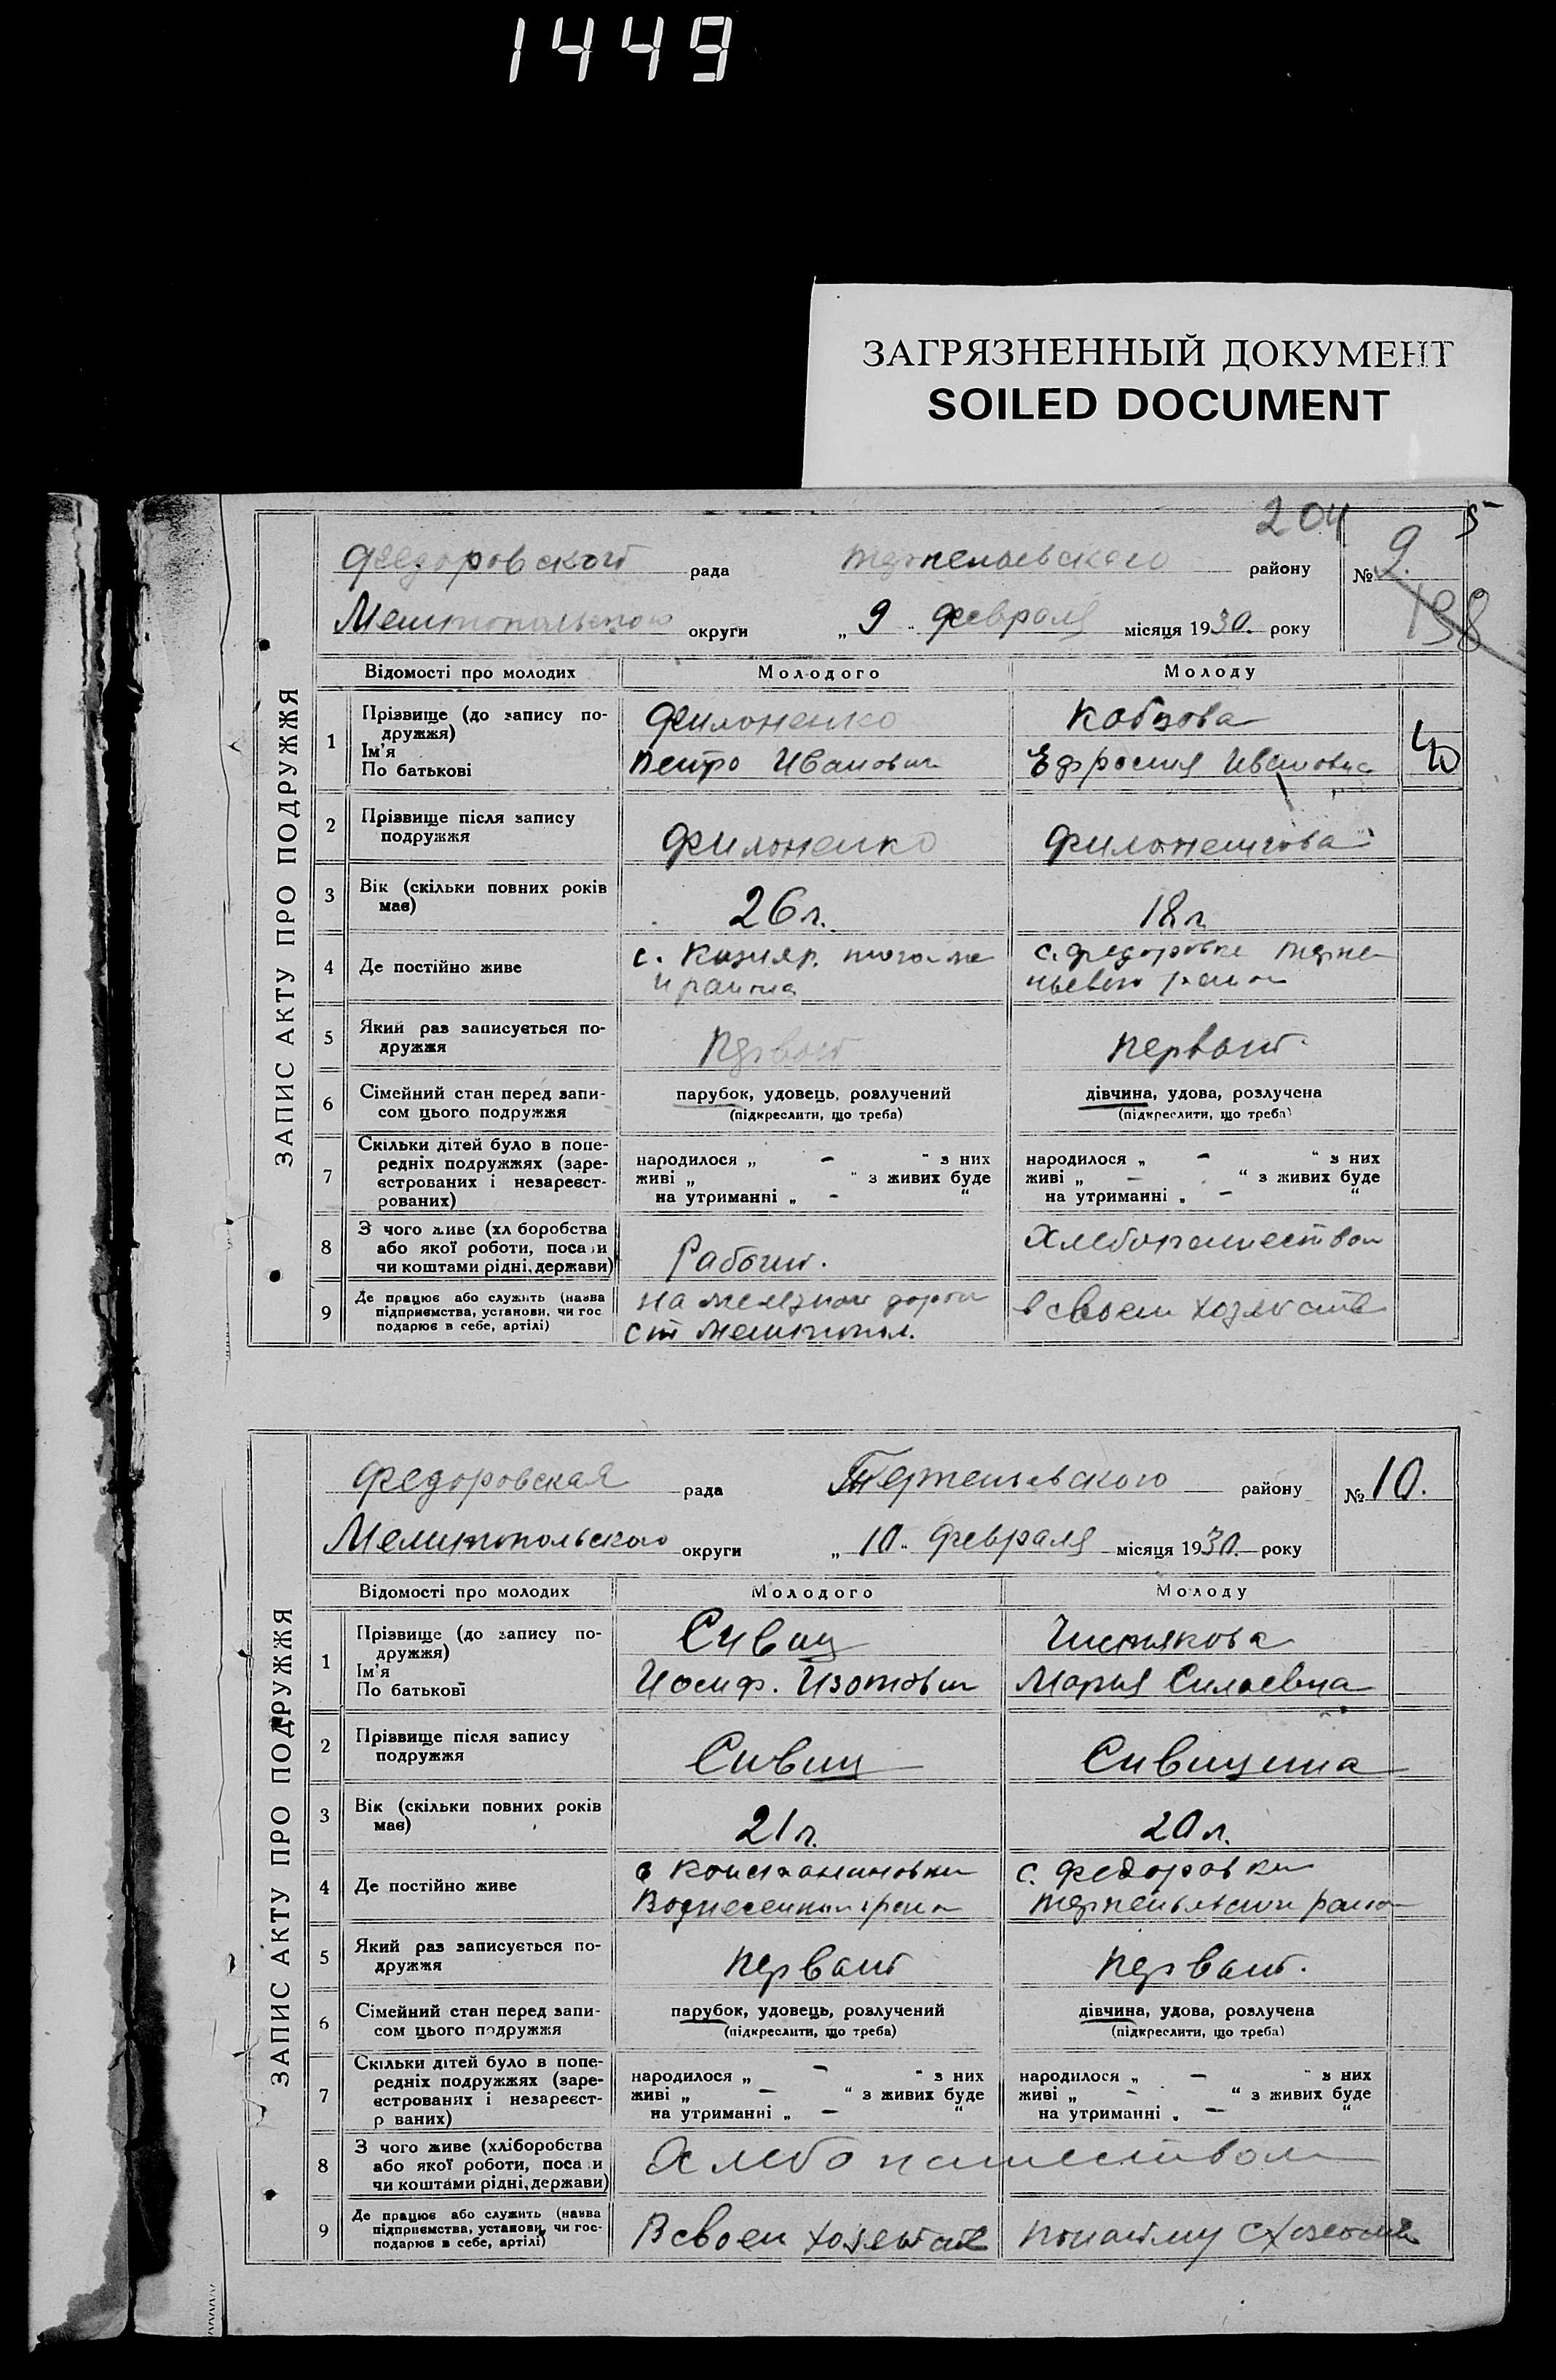 1449
ЗАГРЯЗНЕННЫЙ ДОКУМЕНТ
SOILED DOCUMENT
204
5
Федоровской рада района району № 9.
198
Мелитопольского округи „ 9 " февраля місяця 1930. року
ЗАПИС АКТУ ПРО ПОДРУЖЖЯ
Відомості про молодих Молодого Молоду
1 Прізвище (до запису подружжя) Филоненко Кобзова
Ім'я
По батькові Петро Иванович Ефросиия Ивановна
2 Прізвище після запису подружжя Филоненко Филоненкова
3 Вік (скільки повних років має) 26 л. 18 л
4 Де постійно живе с. с. Федоровке
5 Який раз записується подружжя Первой первой.
6 Сімейний стан перед записом цього подружжя парубок, удовець, розлучений дівчина, удова, розлучена
(підкреслити, що треба) (підкреслити, що треба)
7 Скільки дітей було в попередніх подружжях (зареєстрованих і незареєстрованих) народилося „ – " з них народилося „ – " з них
живі „ " з живих буде живі „ – " з живих буде
на утриманні „ – " на утриманні „ – "
8 З чого живе (хл боробства або якої роботи, посади чи коштами рідні, держави) Рабочий. Хлебопашеством
9 Де працює або служить (назва підприємства, установи, чи гос подарює в себе, артілі) на железной дороги в своем хозяйстве
ст Мелитопол.
Федоровская рада району № 10.
Мелитопольского округи „ 10 " февраля місяця 1930. року
ЗАПИС АКТУ ПРО ПОДРУЖЖЯ
Відомості про молодих Молодого Молоду
1 Прізвище (до запису подружжя) Сивиц Чистякова
Ім'я
По батькові Иосиф. Изотович Мария Силаевна
2 Прізвище після запису подружжя Сивиц Сивицина
3 Вік (скільки повних років має) 21 л. 20 л.
4 Де постійно живе с Константиновки с. Федоровки
5 Який раз записується подружжя первой первой.
6 Сімейний стан перед записом цього подружжя парубок, удовець, розлучений дівчина, удова, розлучена
(підкреслити, що треба) (підкреслити, що треба)
7 Скільки дітей було в попередніх подружжях (зареєстрованих і незареєстр ваних) народилося „ – " з них народилося „ – " з них
живі „ – " з живих буде живі „ – " з живих буде
на утриманні „ – " на утриманні „ – "
8 З чого живе (хліборобства або якої роботи, посади чи коштами рідні, держави) Хлебопашеством
9 Де працює або служить (назва підприємства, установи, чи господарює в себе, артілі) В своем хозяйстве